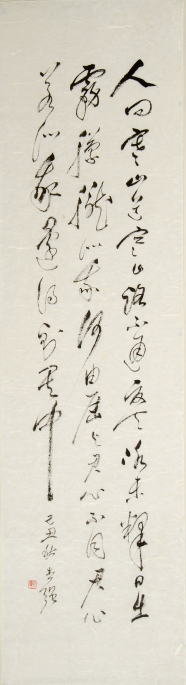 人問寒山道寒山路不通夏天冰未釋日出
霧朦朧似我何由屆與君心不同君心
若似我還得到其中
己丑秋